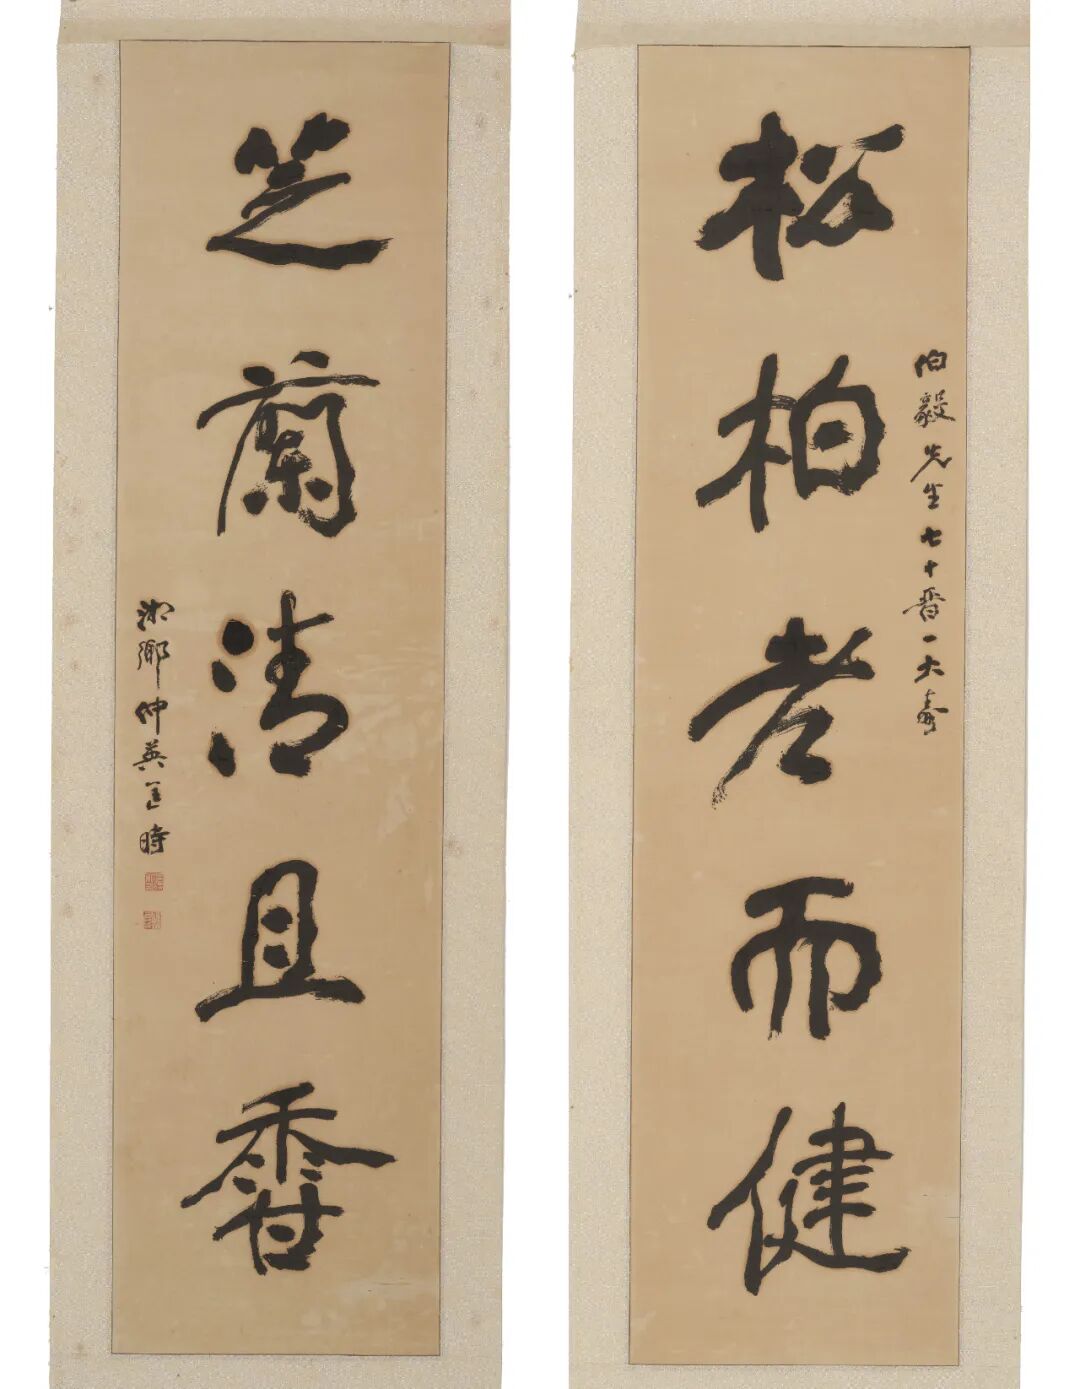 松柏老而健
伯毅先生七十晋一大寿
芝蘭清且香
湘鄉仲英匡時